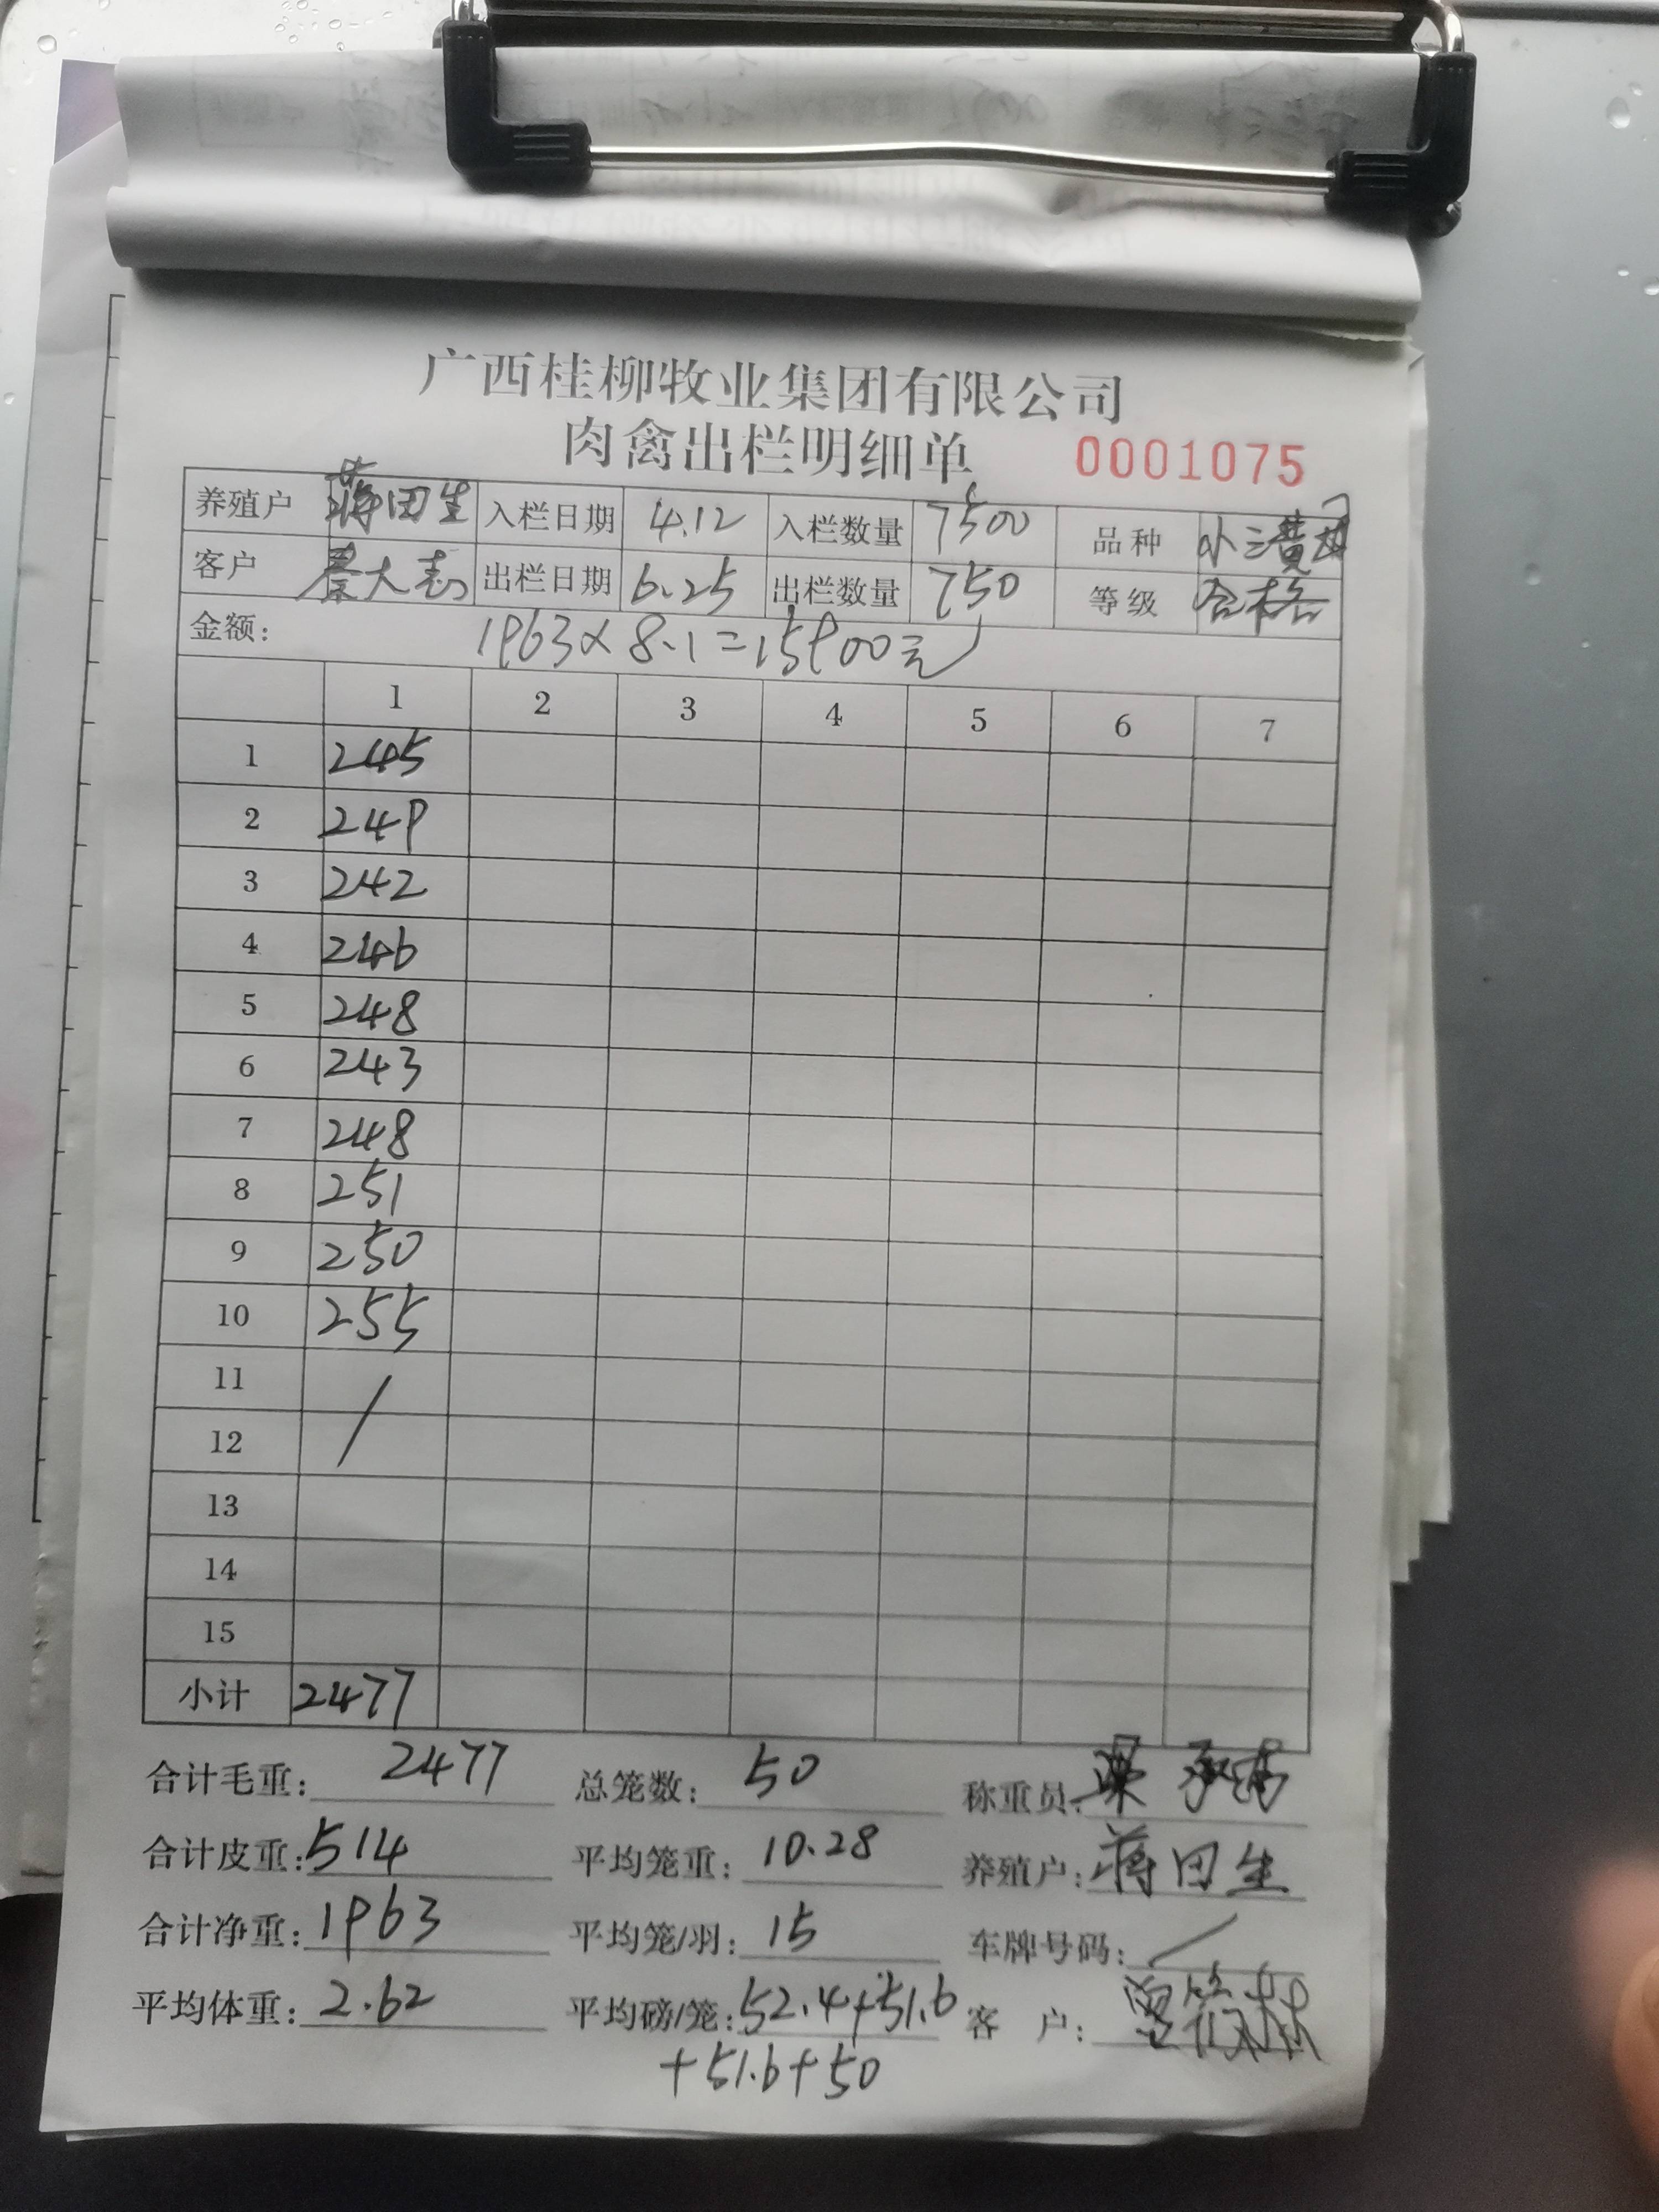 广西桂柳牧业集团有限公司
肉禽出栏明细单 0001075
养殖户 蒋田生 入栏日期 4.12 入栏数量 7500 品种 小三黄
客户 大 出栏日期 6.25 出栏数量 750 等级 合格
金额: 1963×8.1=15900元
1 2 3 4 5 6 7
1 245
2 249
3 242
4 246
5 248
6 243
7 248
8 251
9 250
10 255
11 /
12
13
14
15
小计 2477
合计毛重: 2477 总笼数: 50 称重员:
合计皮重: 514 平均笼重: 10.28 养殖户: 蒋田生
合计净重: 1963 平均笼/羽: 15 车牌号码: /
平均体重: 2.62 平均磅/笼: 52.4+51.6 客户:
+51.6+50